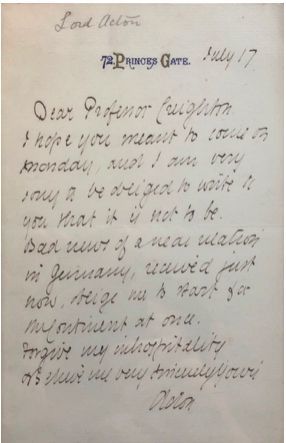 Lord Acton
72, PRINCES GATE.
July 17
Dear Professor Creighton
I hope you meant to come on
Monday, and I am very
sorry to be obliged to write to
you that it is not to be.
Bad news of a near relation
in Germany, received just
now, oblige me to start for
the continent at once.
Forgive my inhospitality
& believe me very sincerely yours
Acton